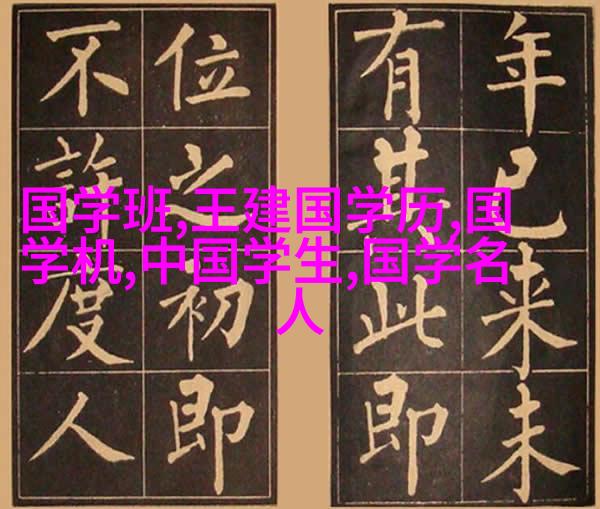 年已来未
有其此即
位之初即
不許度人
国学班,王建国学历,国
学机,中国学生,国学名
人